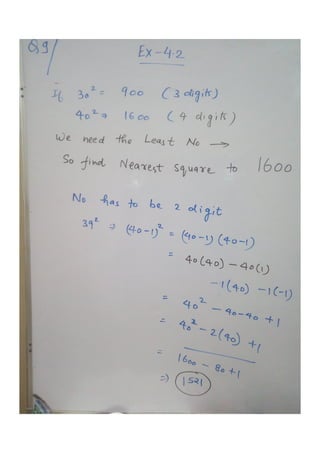 Q9/ Ex-4.2
If 30² = 900 (3 digits)
40² ⇒ 1600 (4 digits)
We need the Least No →
So find Nearest square to 1600
No has to be 2 digit
39² ⇒ (40-1)² = (40-1) (40-1)
= 40(40) - 40(1)
-1(40) -1(-1)
= 40² - 40-40 +1
= 40² - 2(40) +1
= 1600 - 80+1
⇒ 1521